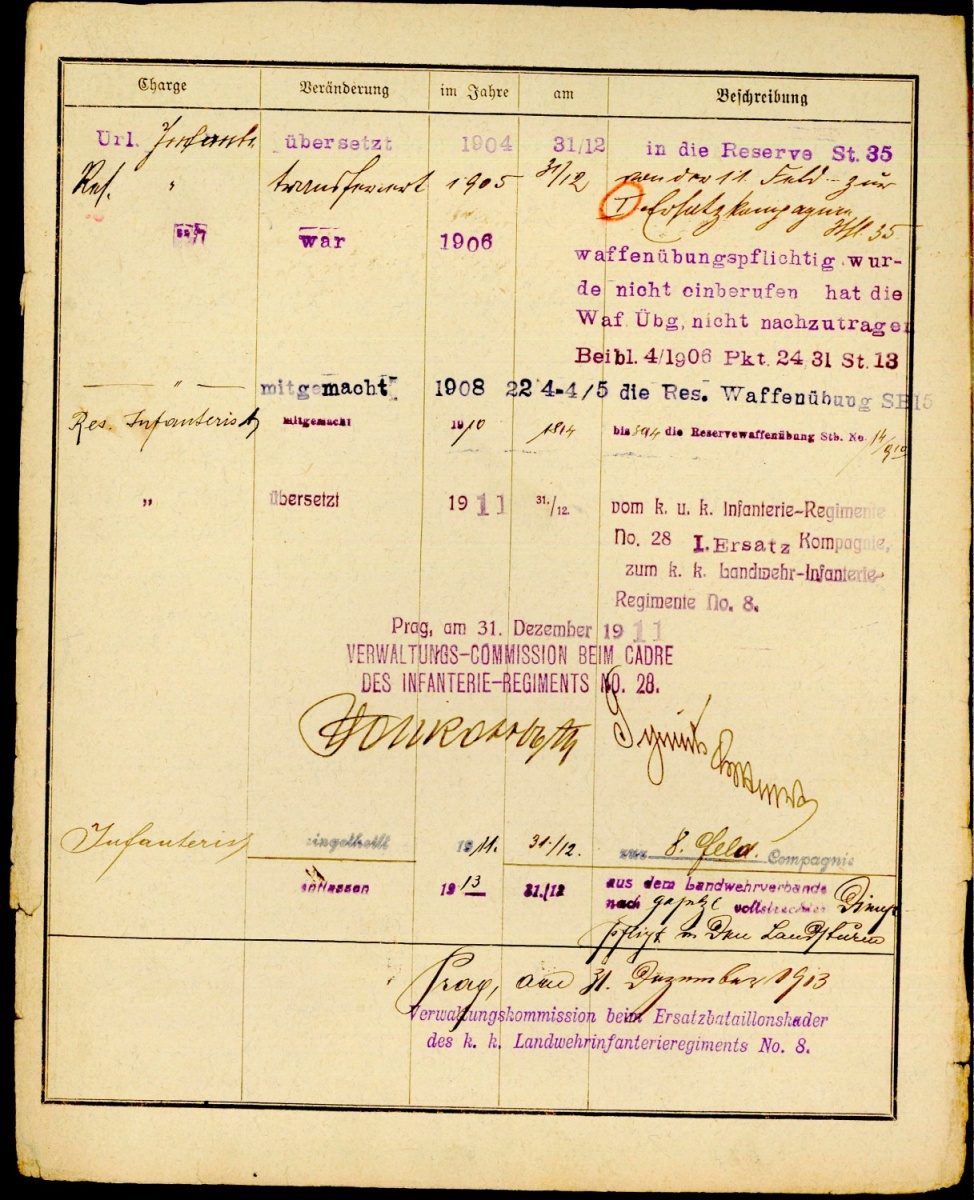 Charge Veränderung im Jahre am Beschreibung
Url. Infant. übersetzt 1904 31/12 in die Reserve St. 35
Res. " transferiert 1905 31/12 von der 11. Feld- zur
I Ersatzkompagnie
35
war 1906
waffenübungspflichtig wur-
de nicht einberufen hat die
Waf. Übg, nicht nachzutragen
Beibl. 4/1906 Pkt. 24, 31 St. 13
" mitgemacht 1908 22 4-4/5 die Res. Waffenübung SB15
Res. Infanterist mitgemacht 1910 bis die Reservewaffenübung Stb. No. 14/910
" übersetzt 1911 31./12. vom k. u. k. Infanterie-Regimente
No. 28 I. Ersatz Kompagnie,
zum k. k. Landwehr-Infanterie-
Regimente No. 8.
Prag, am 31. Dezember 1911
VERWALTUNGS-COMMISSION BEIM CADRE
DES INFANTERIE-REGIMENTS NO. 28.
Infanterist eingetheilt 1911. 31./12. zur 8. Feld. Compagnie
entlassen 1913 31./12 aus dem Landwehrverbande
nach gesetzl vollstreckter Dienst
pflicht in den Landsturm
Prag, am 31. Dezember 1913
Verwaltungskommission beim Ersatzbataillonskader
des k. k. Landwehrinfanterieregiments No. 8.